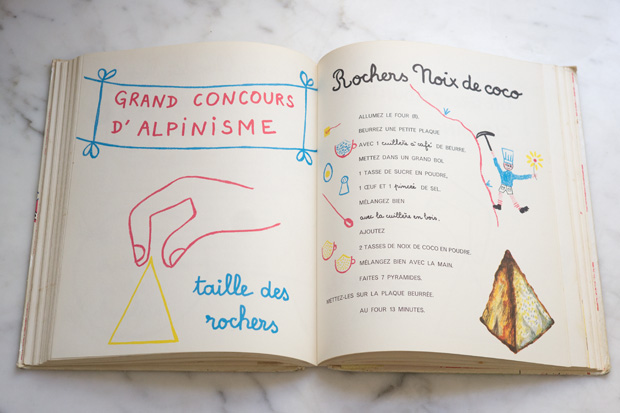 GRAND CONCOURS
D'ALPINISME
taille des
rochers
Rochers Noix de coco
ALLUMEZ LE FOUR (6).
BEURREZ UNE PETITE PLAQUE
AVEC 1 cuillère à café DE BEURRE.
METTEZ DANS UN GRAND BOL
1 TASSE DE SUCRE EN POUDRE,
1 ŒUF ET 1 pincée DE SEL.
MÉLANGEZ BIEN
avec la cuillère en bois.
AJOUTEZ
2 TASSES DE NOIX DE COCO EN POUDRE.
MÉLANGEZ BIEN AVEC LA MAIN.
FAITES 7 PYRAMIDES.
METTEZ-LES SUR LA PLAQUE BEURRÉE.
AU FOUR 13 MINUTES.